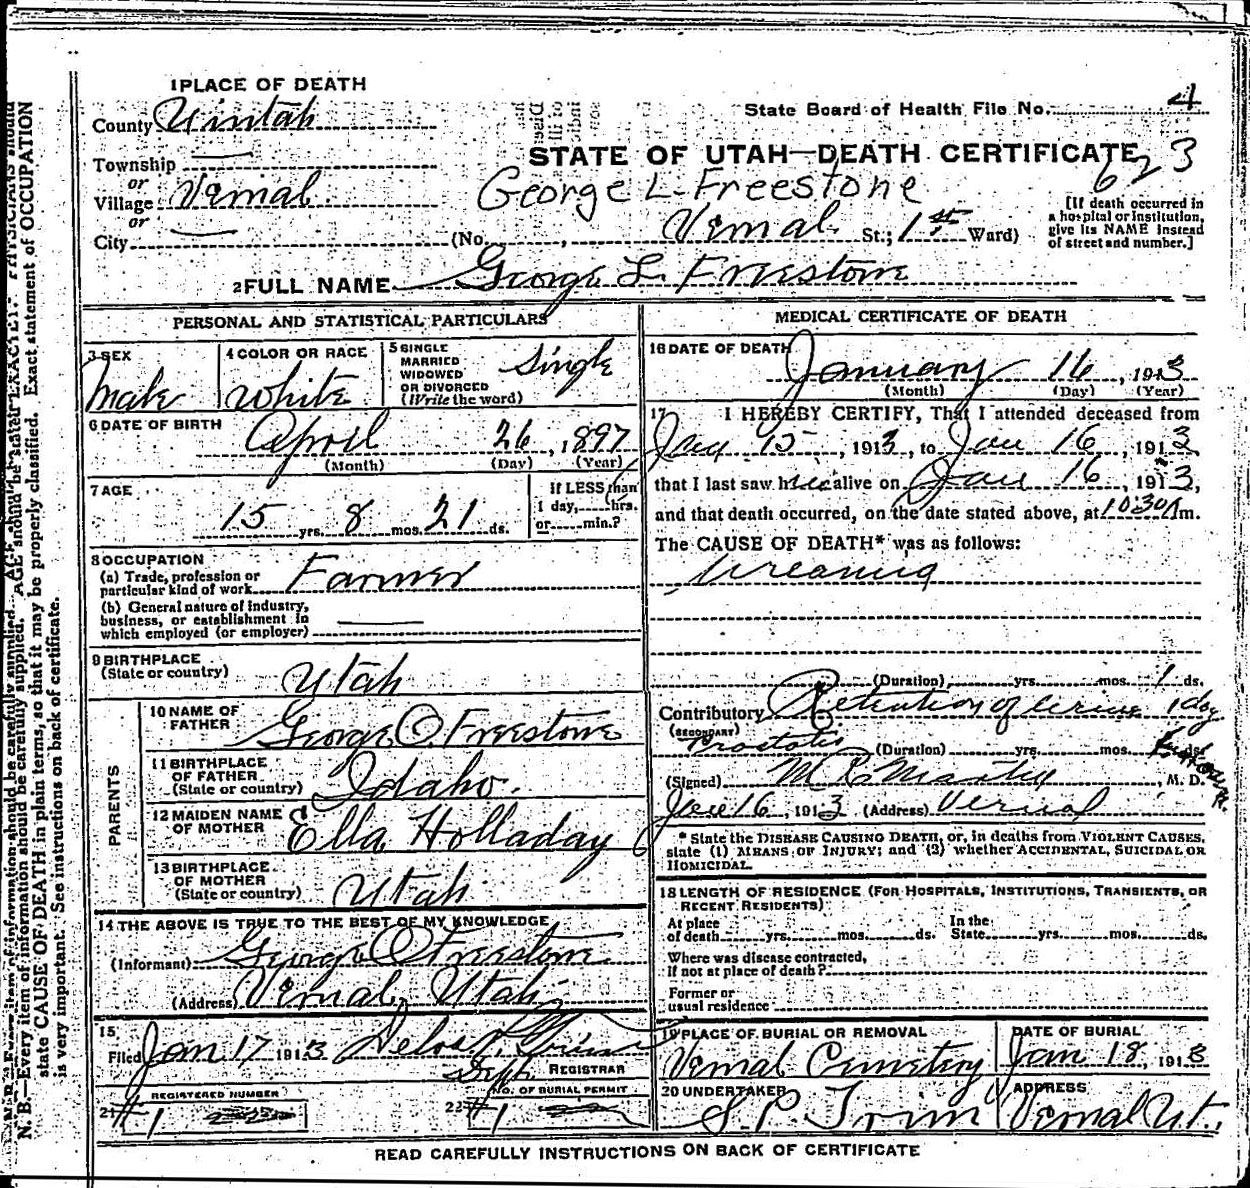 1 PLACE OF DEATH
County Uintah
State Board of Health File No. 4
Township
or
Village Vernal
or
City
STATE OF UTAH—DEATH CERTIFICATE
623
George L. Freestone
(No. , Vernal St.; 1st Ward)
[If death occurred in
a hospital or institution,
give its NAME instead
of street and number.]
2 FULL NAME George L. Freestone
PERSONAL AND STATISTICAL PARTICULARS
3 SEX
Male
4 COLOR OR RACE
White
5 SINGLE
MARRIED
WIDOWED
OR DIVORCED
(Write the word)
Single
6 DATE OF BIRTH
April 26, 1897
(Month) (Day) (Year)
7 AGE
15 yrs. 8 mos. 21 ds.
If LESS than
1 day, hrs.
or min.?
8 OCCUPATION
(a) Trade, profession or
particular kind of work Farmer
(b) General nature of industry,
business, or establishment in
which employed (or employer)
9 BIRTHPLACE
(State or country)
Utah
PARENTS
10 NAME OF
FATHER
George O. Freestone
11 BIRTHPLACE
OF FATHER
(State or country)
Idaho.
12 MAIDEN NAME
OF MOTHER
Ella Holladay
13 BIRTHPLACE
OF MOTHER
(State or country)
Utah.
14 THE ABOVE IS TRUE TO THE BEST OF MY KNOWLEDGE
(Informant) George O Freestone
(Address) Vernal, Utah
15
Filed Jan 17 1913
REGISTRAR
REGISTERED NUMBER
21 #1
NO. OF BURIAL PERMIT
22 #1
MEDICAL CERTIFICATE OF DEATH
16 DATE OF DEATH
January 16, 1913
(Month) (Day) (Year)
17 I HEREBY CERTIFY, That I attended deceased from
Jan 15, 1913, to Jan 16, 1913
that I last saw him alive on Jan 16, 1913,
and that death occurred, on the date stated above, at 10:30 A m.
The CAUSE OF DEATH* was as follows:
Ureamia
(Duration) yrs. mos. 1 ds.
Contributory Retention of urine 1 day
(SECONDARY)
(Duration) yrs. mos. ds.
(Signed) , M. D.
Jan 16, 1913 (Address) Vernal
* State the DISEASE CAUSING DEATH, or, in deaths from VIOLENT CAUSES,
state (1) MEANS OF INJURY; and (2) whether ACCIDENTAL, SUICIDAL OR
HOMICIDAL.
18 LENGTH OF RESIDENCE (FOR HOSPITALS, INSTITUTIONS, TRANSIENTS, OR
RECENT RESIDENTS)
At place
of death yrs. mos. ds.
In the
State yrs. mos. ds.
Where was disease contracted,
if not at place of death?
Former or
usual residence
19 PLACE OF BURIAL OR REMOVAL
Vernal Cemetery
DATE OF BURIAL
Jan 18, 1913
20 UNDERTAKER
ADDRESS
Vernal Ut.,
READ CAREFULLY INSTRUCTIONS ON BACK OF CERTIFICATE
N. B.—Every item of information should be carefully supplied. AGE should be stated EXACTLY. PHYSICIANS should
state CAUSE OF DEATH in plain terms, so that it may be properly classified. Exact statement of OCCUPATION
is very important. See instructions on back of certificate.